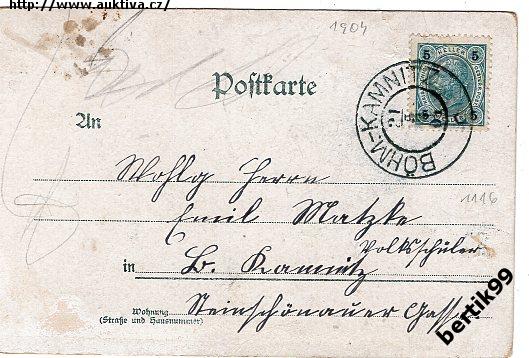 http://www.auktiva.cz/
1904
5 HELLER 5
Postkarte
BÖHM-KAMNITZ
An
Wohlg Herrn
1116
Emil Matzke
Volksschüler
in B. Kamnitz
Wohnung
(Straße und Hausnummer)
Steinschönauer Gasse
bertik99